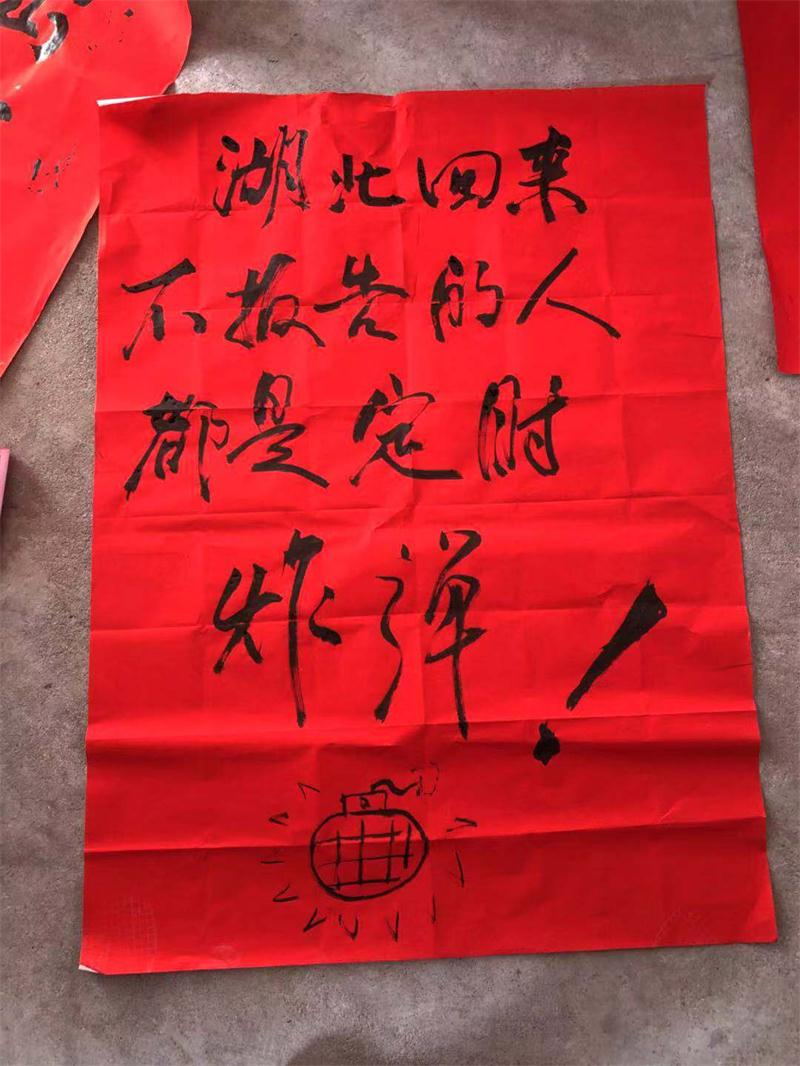 湖北回来
不报告的人
都是定时
炸弹！